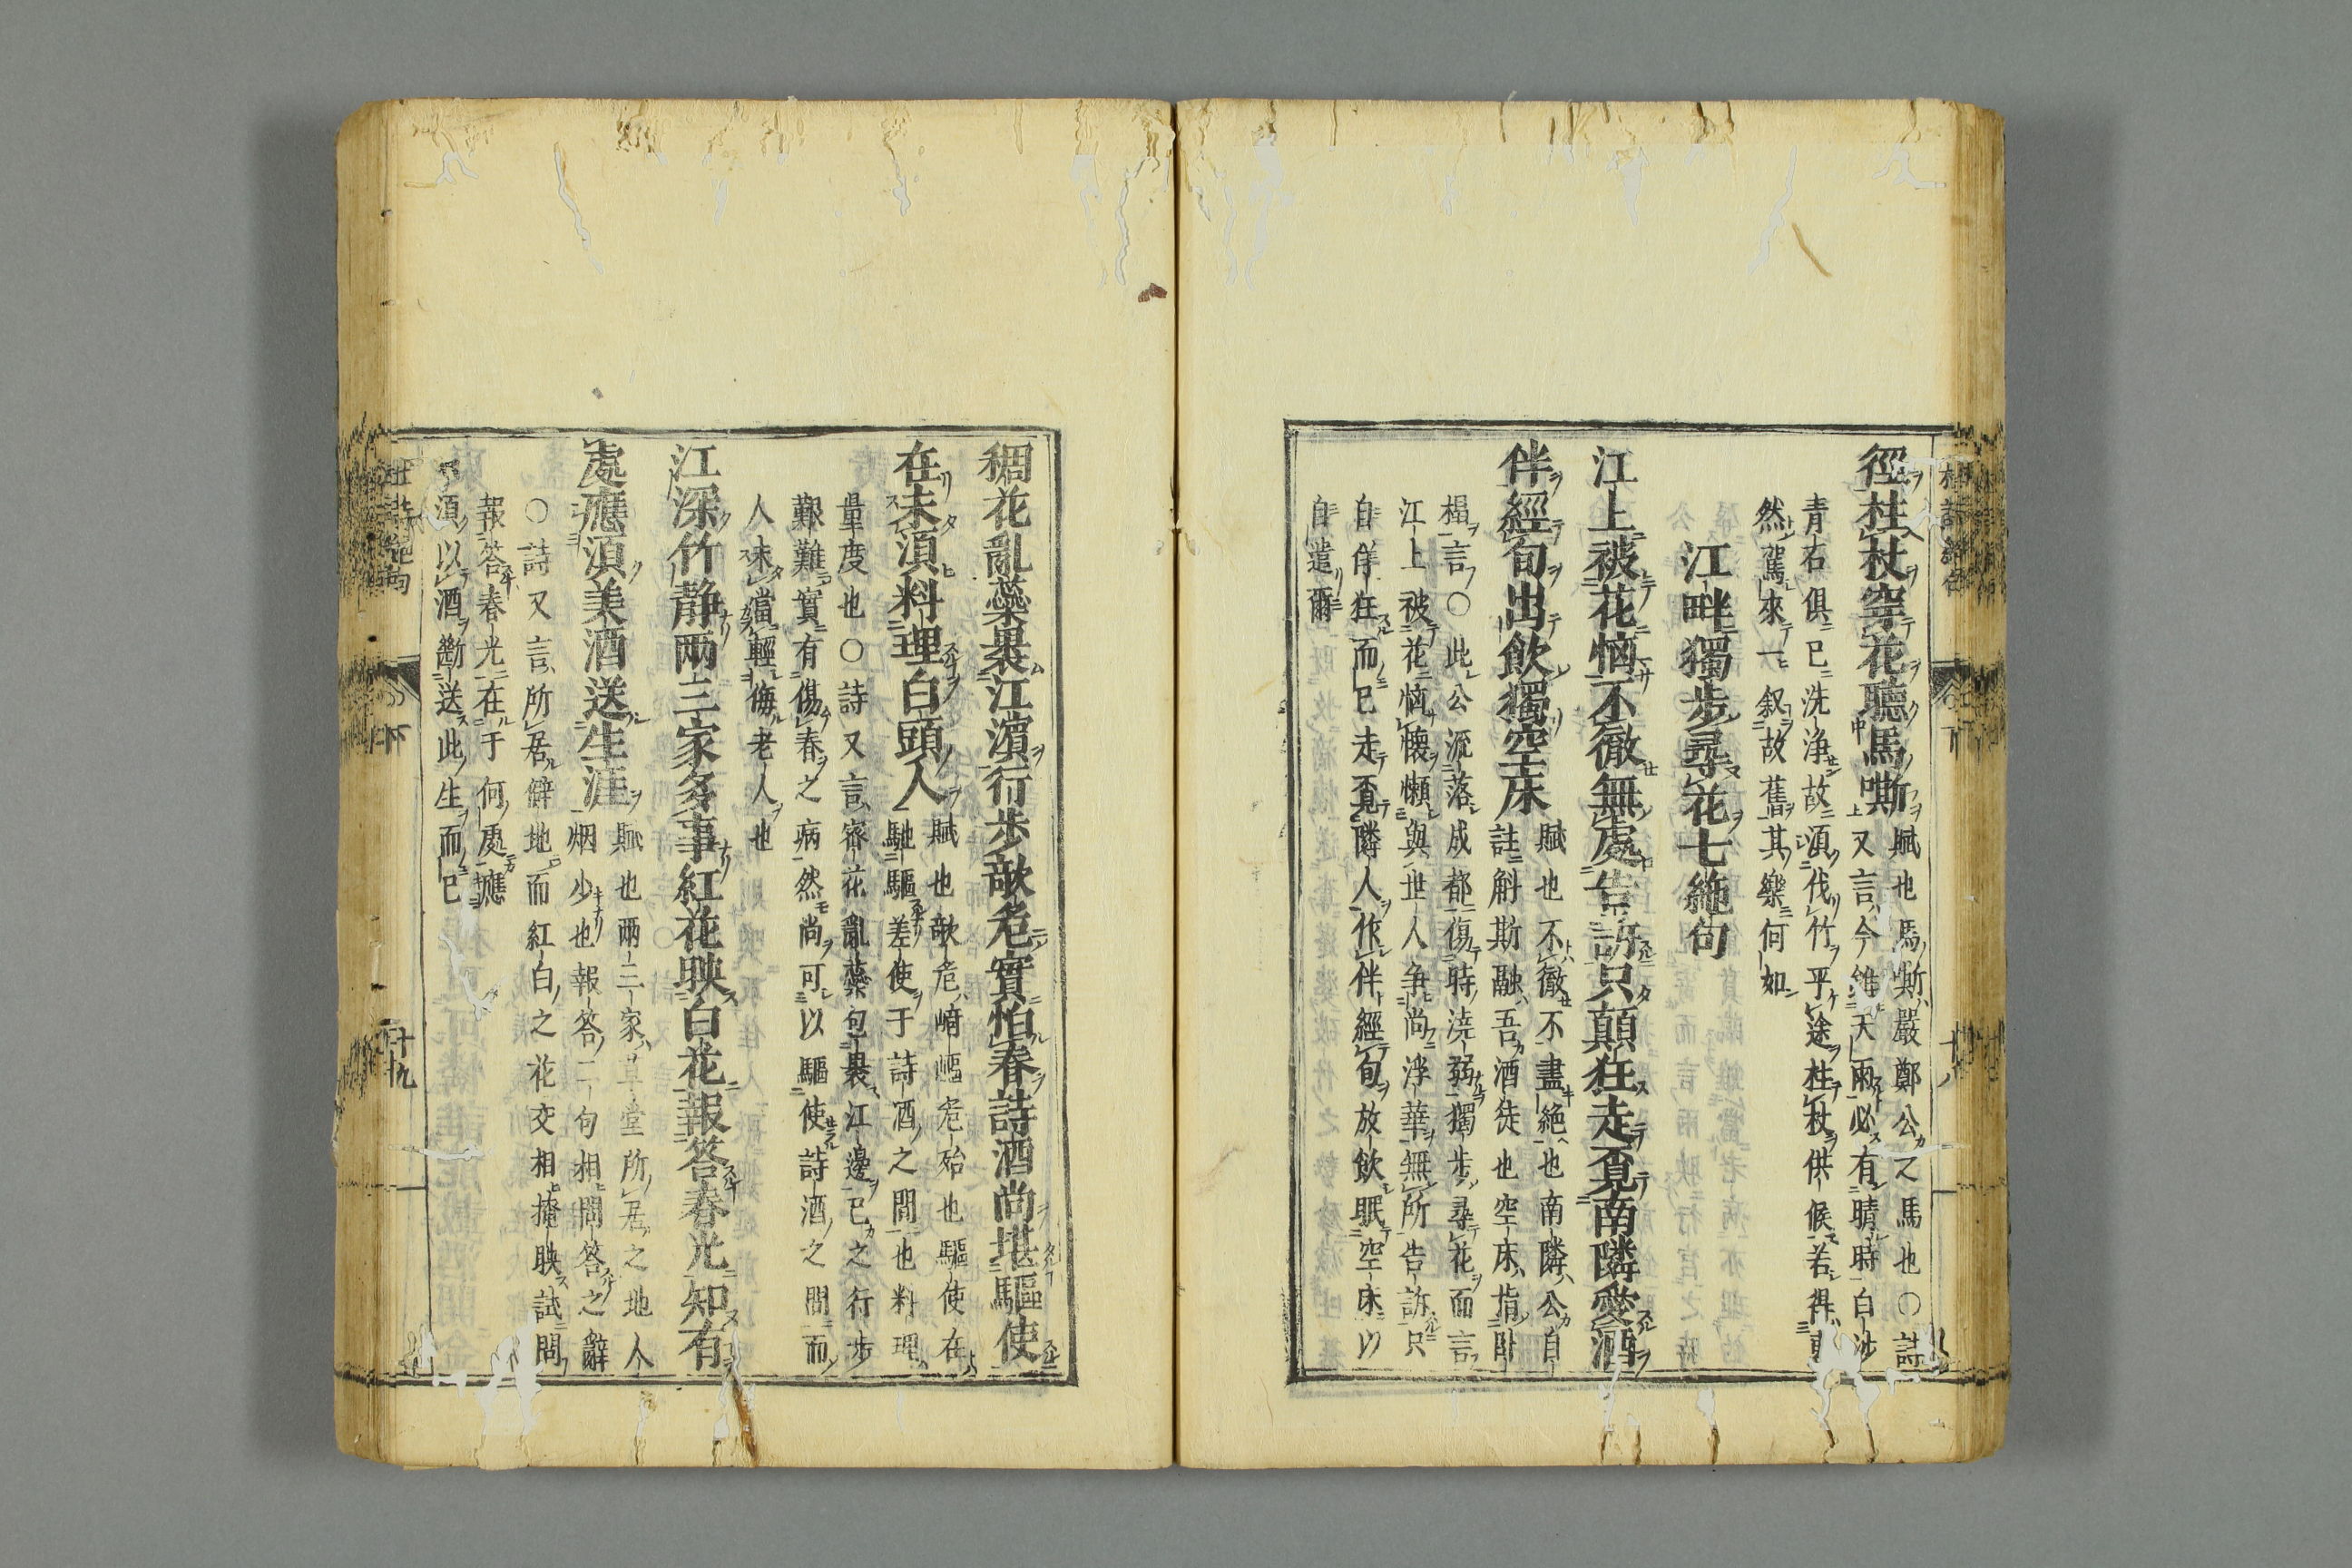 徑拄杖穿花聽馬嘶 賦也馬嘶嚴鄭公之馬也○詩
又言今雖天雨必有晴時白沙
青石俱已洗淨故須伐竹平途拄杖供候若得
然駕來一叙故舊其樂何如
江畔獨步尋花七絶句
江上被花惱不徹無處告訴只顛狂走覓南隣愛酒
伴經旬出飲獨空床 賦也不徹不盡絶也南隣公自
註斛斯融吾酒徒也空床指卧
榻言○此公流落成都傷時澆弱獨步尋花而言
江上被花惱懷懶與世人爭尚浮華無所告訴只
自佯狂而已走覓隣人作伴經旬放飲眠空床以
自遣爾
稠花亂蘂裹江濱行步欹危實怕春詩酒尚堪驅使
在未須料理白頭人 賦也欹危崎嶇危殆也驅使在
馳驅差使于詩酒之間也料理
量度也○詩又言密花亂蘂包裹江邊已之行步
艱難實有傷春之病然尚可以驅使詩酒之間而
人未當輕侮老人也
江深竹靜兩三家多事紅花映白花報答春光知有
處應須美酒送生涯 賦也兩三家草堂所居之地人
烟少也報答二句相問答之辭
○詩又言所居僻地而紅白之花交相掩映試問
報答春光在于何處應
須以酒斷送此生而已
杜詩絶句
下
十九